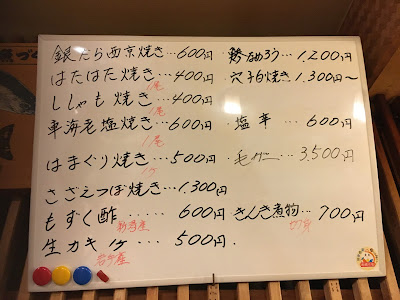 銀だら西京焼き…600円
はたはた焼き…400円
1尾
ししゃも焼き…400円
1尾
車海老塩焼き…600円
1尾
はまぐり焼き…500円
1ケ
さざえつぼ焼き…1,300円
もずく酢…600円
生カキ1ケ…500円
鯵なめろう…1,200円
穴子白焼き1,300円〜
塩辛…600円
毛ガニ…3,500円
きんき煮物…700円